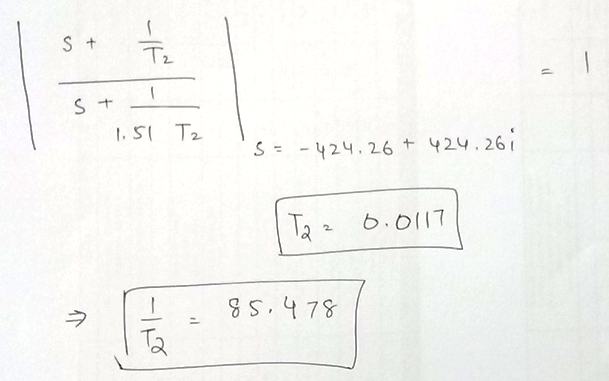 | (s + 1/T2) / (s + 1/(1.51 T2)) | s = -424.26 + 424.26i = 1
T2 = 0.0117
⇒ 1/T2 = 85.478